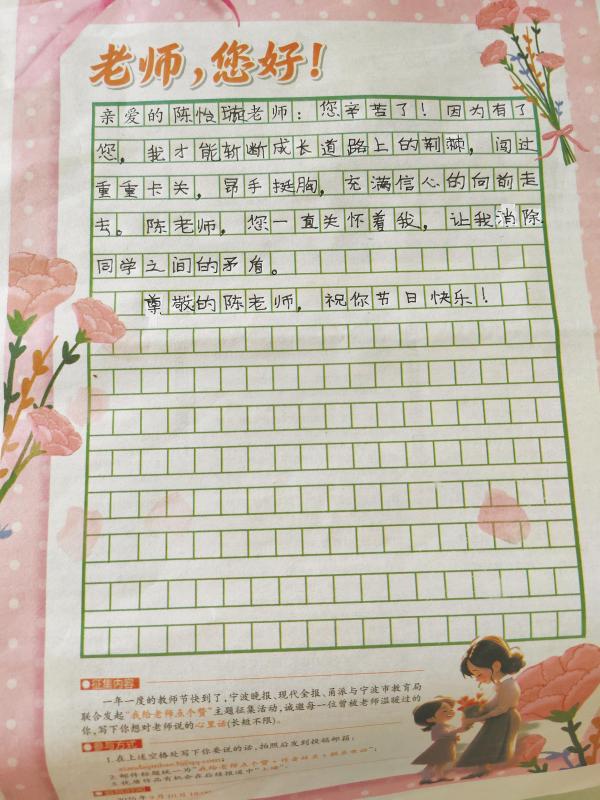 老师,您好!
亲爱的陈怡璇老师：您辛苦了！因为有了
您，我才能斩断成长道路上的荆棘，闯过
重重卡关，昂手挺胸，充满信心的向前走
去。陈老师，您一直关怀着我，让我消除
同学之间的矛盾。
尊敬的陈老师，祝你节日快乐！
征集内容
一年一度的教师节快到了,宁波晚报、现代金报、甬派与宁波市教育局
联合发起“我给老师点个赞”主题征集活动,诚邀每一位曾被老师温暖过的
你,写下你想对老师说的心里话(长短不限)。
参与方式
1.在上述空格处写下你要说的话,拍照后发到投稿邮箱:
2.邮件标题统一为“我给老师点个赞+
3.优质作品有机会在后续报道中“上墙”。